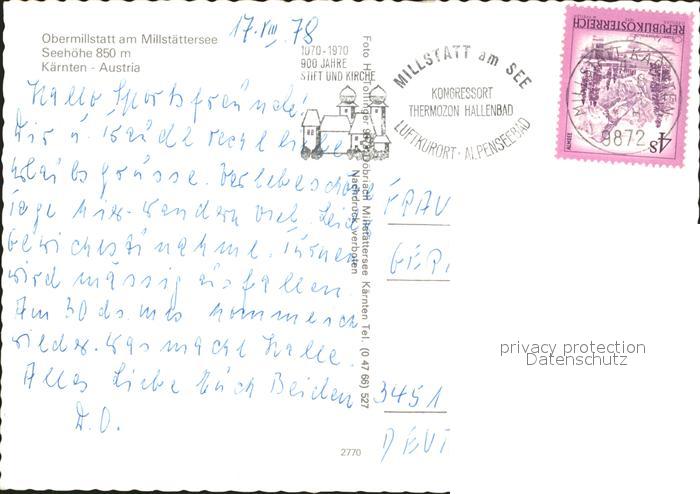 17. VIII 78
Obermillstatt am Millstättersee
Seehöhe 850 m
Kärnten - Austria
1070-1970
900 JAHRE
STIFT UND KIRCHE
MILLSTATT am SEE
KONGRESSORT
THERMOZON HALLENBAD
LUFTKURORT · ALPENSEEBAD
REPUBLIK ÖSTERREICH
ALMSEE
4 S
9872
Hallo Sportsfreunde!
Dir u. Traudl recht liebe
Urlaubsgrüsse. Verleben schöne
Tage hier. Wandern viel. Leider
Gewichtszunahme. Turnen
wird mässig ausfallen.
Am 30 ds. mts kommen ich
wieder. Was macht Halle.
Alles Liebe Euch Beiden
D.O.
Döbriach Millstättersee Kärnten Tel. (0 47 66) 527
Nachdruck verboten
FRAU
3451
DEUT
2770
privacy protection
Datenschutz